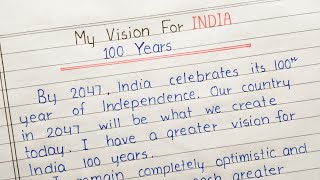 My Vision For INDIA
100 Years
By 2047, India celebrates its 100th
year of Independence. Our country
in 2047 will be what we create
today. I have a greater vision for
India 100 years.
I remain completely optimistic and
each greater